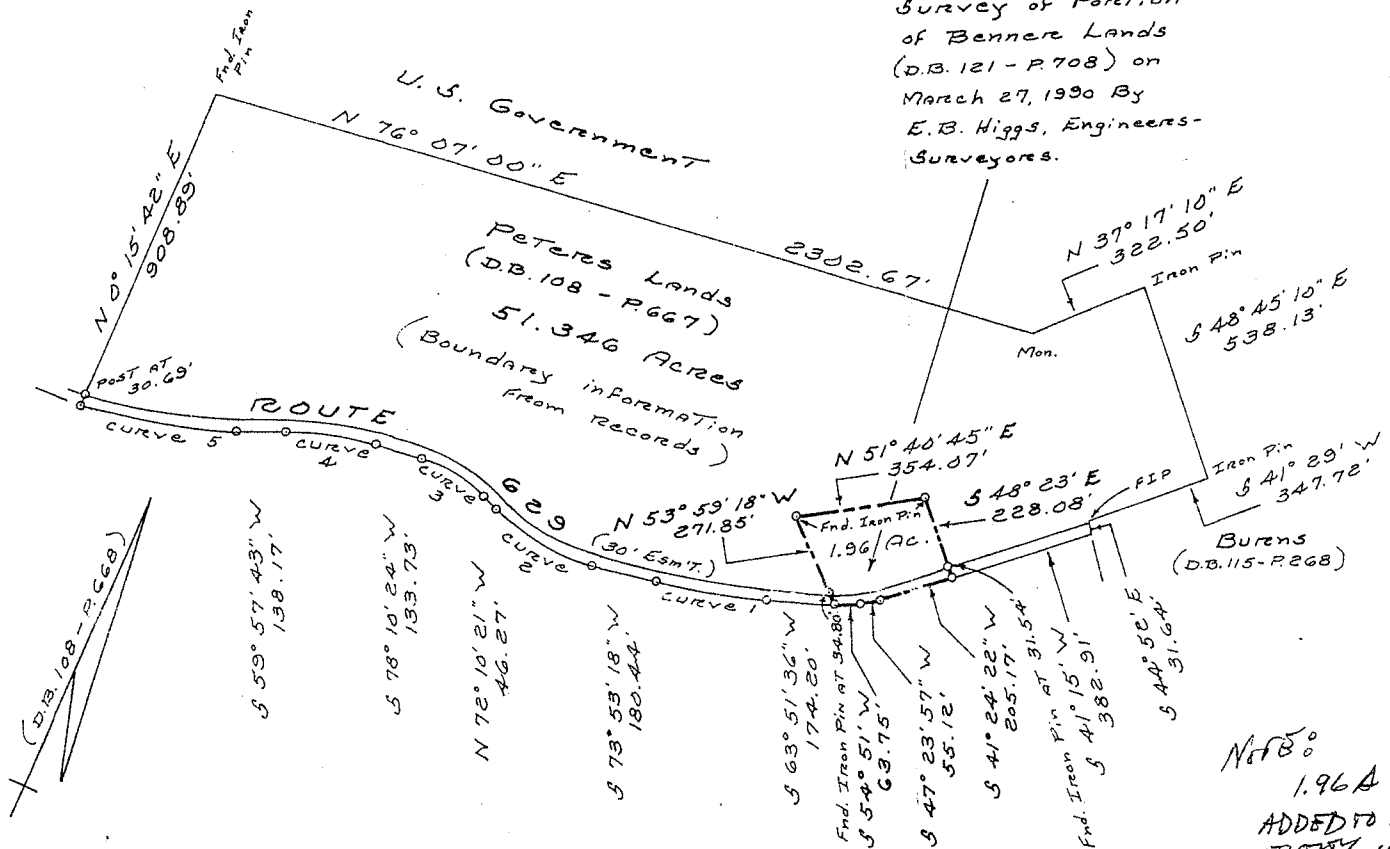 Survey of Portion
of Benner Lands
(D.B. 121 - P. 708) on
March 27, 1990 By
E.B. Higgs, Engineers-
Surveyors.
Fnd. Iron
Pin
U.S. Government
N 76° 07' 00" E
2302.67'
N 0° 15' 42" E
908.89'
Peters Lands
(D.B. 108 - P. 667)
51.346 Acres
(Boundary information
From Records)
N 37° 17' 10" E
322.50'
Iron Pin
Mon.
S 48° 45' 10" E
538.13'
POST AT
30.69'
ROUTE
629
(30' Esm'T.)
CURVE 5
CURVE 4
CURVE 3
CURVE 2
CURVE 1
N 51° 40' 45" E
354.07'
N 53° 59' 18" W
271.85'
Fnd. Iron Pin
1.96 Ac.
S 48° 23' E
228.08'
FIP
Iron Pin
S 41° 29' W
347.72'
Burns
(D.B. 115 - P. 268)
(D.B. 108 - P. 668)
S 59° 57' 43" W
138.17'
S 78° 10' 24" W
133.73'
N 72° 10' 21" W
46.27'
S 73° 53' 18" W
180.44'
S 63° 51' 36" W
174.20'
Fnd. Iron Pin AT 34.80'
S 54° 51' W
63.75'
S 47° 23' 57" W
55.12'
S 41° 24' 22" W
205.17'
Fnd. Iron Pin AT 31.54'
S 41° 15' W
382.91'
S 44° 52' E
31.64'
NOTE:
1.96 A
ADDED TO